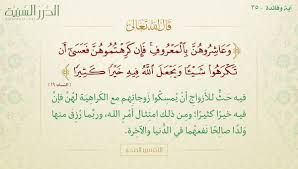 الدرر السنية
آية وفائدة - ٣٥
قال الله تعالى
﴿ وَعَاشِرُوهُنَّ بِالْمَعْرُوفِ فَإِن كَرِهْتُمُوهُنَّ فَعَسَىٰ أَن
تَكْرَهُوا شَيْئًا وَيَجْعَلَ اللَّهُ فِيهِ خَيْرًا كَثِيرًا ﴾
[النساء: ١٩]
فيه حثٌّ للأزواجِ أنْ يُمسكوا زوجاتِهم مع الكراهيةِ لهُنَّ فإنَّ
فيه خيرًا كثيرًا؛ ومِن ذلك امتثالُ أمرِ الله، وربَّما رُزِقَ منها
ولدًا صالحًا نفعَهُما في الدُّنيا والآخِرةِ.